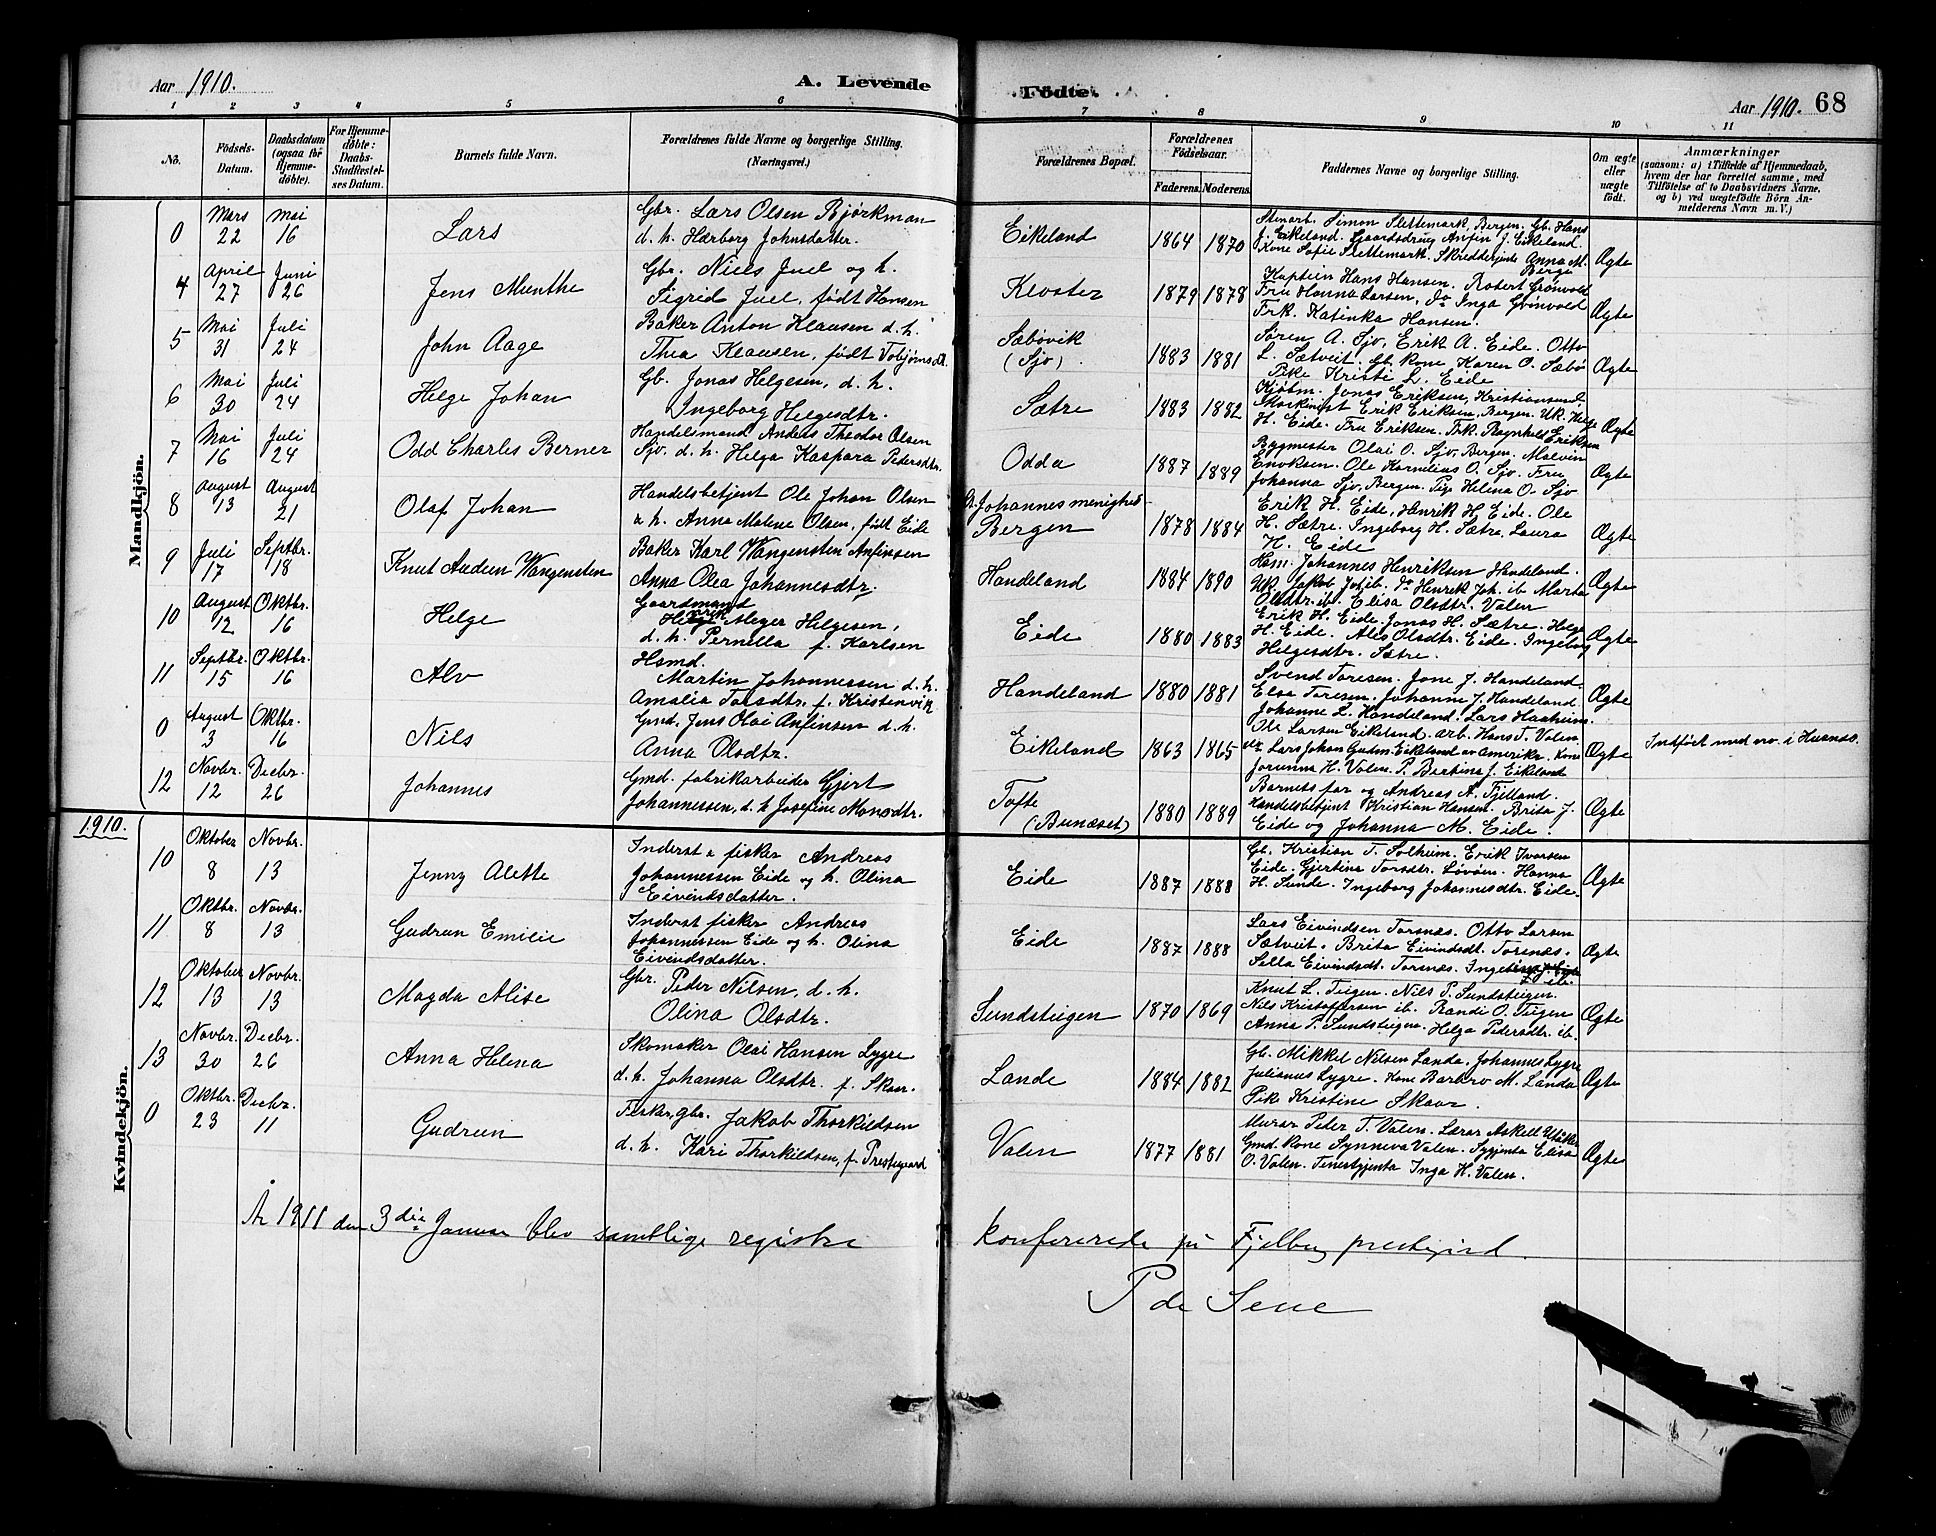 Aar 1910.
A. Levende
Födte.
Aar 1910. 68
1 2 3 4 5 6 7 8 9 10 11
No. Födsels-Datum. Daabsdatum (ogsaa for Hjemme-døbte). For Hjemme-døbte: Daabs-Stadfæstel-ses Datum. Barnets fulde Navn. Forældrenes fulde Navne og borgerlige Stilling. (Næringsvei.) Forældrenes Bopæl. Forældrenes Födselsaar. Faderens. Moderens. Faddernes Navne og borgerlige Stilling. Om ægte eller uægte født. Anmærkninger (saasom: a) i Tilfælde af Hjemmedaab, hvem der har forrettet samme, med Tilföielse af to Daabsvidners Navne, og b) ved uægtefödte Börn An-melderens Navn m. V.)
Mandkjön.
0 Mars 22 Mai 16 Lars
Gbr. Lars Olsen Bjørkman
d. h. Hærborg Johnsdatter.
Eikeland 1864 1870
Stenarb. Simon Slettemark, Bergen. Gb. Hans
J. Eikeland. Gaardsdreng Anfin J. Eikeland.
Kone Sofie Slettemark. Skredderjente Anna M.
Berge
Ægte
4 April 27 Juni 26 Jens Munthe
Gbr. Niels Juel og h.
Sigrid Juel, født Hansen
Kloster 1879 1878
Kaptein Hans Hansen. Robert Grønvold
Fru Hanna Larsen, do Inga Grønvold
Frk. Katinka Hansen.
Ægte
5 Mai 31 Juli 24 John Aage
Baker Anton Klausen d. h.
Thea Klausen, født Tobjørnsdt.
Sæbøvik
(Sjo) 1883 1881
Søren A. Sjo, Erik A. Eide. Otto
L. Sætveit. Gb. kone Karen O. Sæbø
Pike Kristi L. Eide
Ægte
6 Mai 30 Juli 24 Helge Johan
Gb. Jonas Helgesen, d. h.
Ingeborg Helgesdtr.
Sætre 1883 1882
Kjøbm. Jonas Eriksen, Kristiansund
Maskinist Erik Eriksen, Bergen. Uk. Helge
H. Eide. Fru Eriksen. Frk. Ragnhild Eriksen
Ægte
7 Mai 16 Juli 24 Odd Charles Berner
Handelsmand Anders Theodor Olsen
Sjo. d. h. Helga Kaspara Pedersdtr.
Odda 1887 1889
Bygmester Olai O. Sjo, Bergen. Malvin
Enoksen. Ole Kornelius O. Sjo. Fru
Johanna Sjo, Bergen. Pige Helina O. Sjo
Ægte
8 August 13 August 21 Olaf Johan
Handelsbetjent Ole Johan Olsen
& h. Anna Malene Olsen, født Eide
St. Johannes menighed
Bergen 1878 1884
Erik H. Eide, Henrik H. Eide. Ole
H. Sætre. Ingeborg H. Sætre, Laura
H. Eide
Ægte
9 Juli 17 Septbr. 18 Knut Audun Wangensten
Baker Karl Wangensten Anfinsen
Anna Olea Johannesdtr.
Handeland 1884 1890
Hsm. Johannes Henriksen Handeland.
Uk. Jakob Joh. ib. do Henrik Joh. ib. Marta
Olsdtr. ib. Elisa Olsdtr. Valen
Ægte
10 August 12 Oktbr. 16 Helge
Gaardmand
Henrik Meyer Helgesen,
d. h. Pernella f. Karlsen
Eide 1880 1883
Erik H. Eide. Jonas H. Sætre. Helge
H. Eide. Ales Olsdtr. Eide. Ingeborg
Helgesdtr. Sætre.
Ægte
11 Septbr. 15 Oktbr. 16 Alv
Hsmd.
Martin Johannessen d. h.
Amalia Torsdtr. f. Kristenvik
Handeland 1880 1881
Svend Toresen. Jone J. Handeland.
Elsa Toresen. Johanne J. Handeland
Johanne L. Handeland. Lars Haaheim.
Ægte
0 August 3 Oktbr. 16 Nils
Gmd. Jens Olai Anfinsen d. h.
Anna Olsdtr.
Eikeland 1863 1865
Ole Larsen Eikeland. Arb. Hans T. Valen
Lars Johan Gudm. Eikeland av Amerika. Kone
Jorunna H. Valen. P. Bertina J. Eikeland
Ægte
Indført med no. i Husnes.
12 Novbr. 12 Decbr. 26 Johannes
Gmd. fabrikarbeider Gjert
Johannessen, d. h. Josefine Monsdtr.
Tofte
(Bunæset) 1880 1889
Barnets far og Andreas A. Fjelland.
Handelsbetjent Kristian Hansen. Brita J.
Eide og Johanna M. Eide.
Ægte
1910.
Kvindekjön.
10 Oktober 8 Novbr. 13 Jenny Alette
Inderst & fisker Andreas
Johannessen Eide og h. Olina
Eivindsdatter.
Eide 1887 1888
Gb. Kristian T. Solheim. Erik Ivarsen
Eide. Gjertina Torsdtr. Løvøen. Hanna
H. Sunde. Ingeborg Johannesdtr. Eide.
Ægte
11 Oktbr. 8 Novbr. 13 Gudrun Emilie
Inderst fisker Andreas
Johannessen Eide og h. Olina
Eivindsdatter.
Eide 1887 1888
Lars Eivindsen Torsnæs. Otto Larsen
Sætveit. Brita Eivindsdt. Torsnæs.
Sella Eivindsdt. Torsnæs.
Ægte
12 Oktober 13 Novbr. 13 Magda Alise
Gbr. Peder Nilsen, d. h.
Olina Olsdtr.
Sundsteigen 1870 1869
Knut L. Teigen. Nils P. Sundsteigen.
Nils Kristoffersen ib. Randi O. Teigen
Anna P. Sundsteigen. Helga Pedersdtr. ib.
Ægte
13 Novbr. 30 Decbr. 26 Anna Helena
Skomaker Olai Hansen Lygre
d. h. Johanna Olsdtr. f. Skaar.
Lande 1884 1882
Gb. Mikkel Nilsen Landa. Johannes Lygre
Julianus Lygre. Kone Barbro M. Landa
Pik Kristine Skaar.
Ægte
0 Oktbr. 23 Decbr. 11 Gudrun
Fisker, gbr. Jakob Thorkildsen
d. h. Kari Thorkildsen, f. Prestegaard
Valen 1877 1881
Murar Peder T. Valen. Lærar Askell Utaaker
Gmd. Kone Synneva Valen. Syjenta Elisa
O. Valen. Tenestgjenta Inga H. Valen.
Ægte
År 1911 den 3die Januar blev samtlige registre konfererede på Fjelberg prestegård.
P de Seue